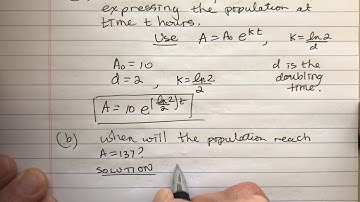 expressing the population at
time t hours.
Use A = A₀ e^{kt}, K = ln2/d
A₀ = 10 d is the
d = 2, K = ln2/2 doubling
time.
A = 10 e^{[ln2/2]t}
(b) when will the population reach
A = 137?
SOLUTION